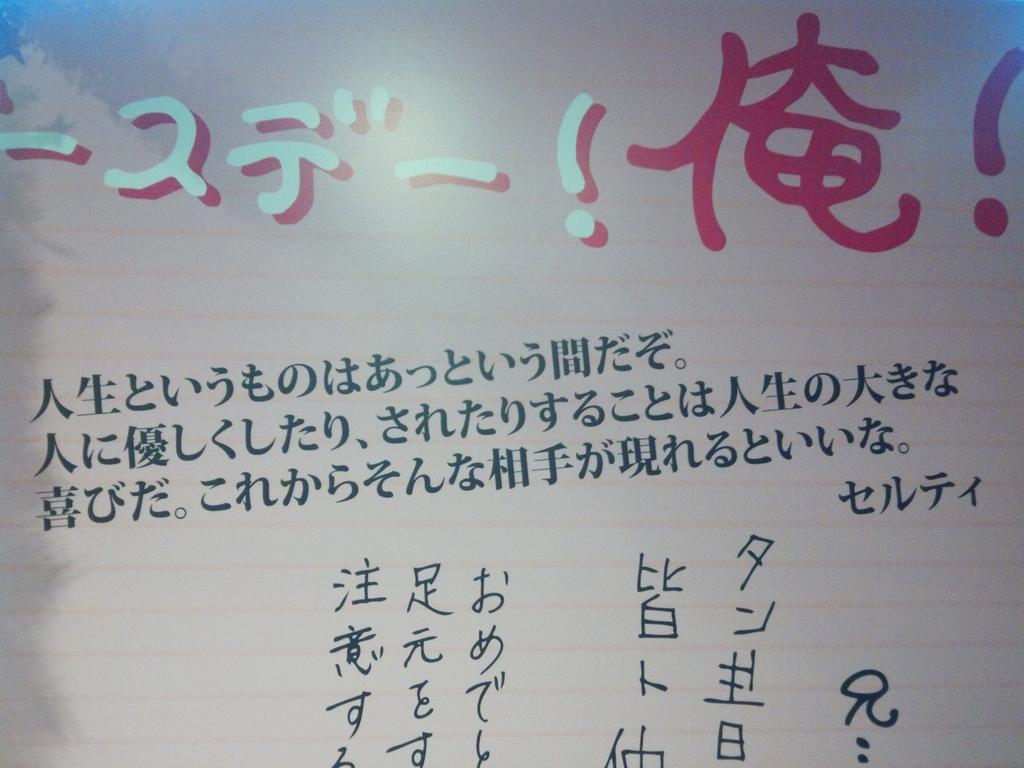 ースデー！俺！
人生というものはあっという間だぞ。
人に優しくしたり、されたりすることは人生の大きな
喜びだ。これからそんな相手が現れるといいな。
セルティ
兄…
タン生日
皆ト仲
おめでと
足元をす
注意する